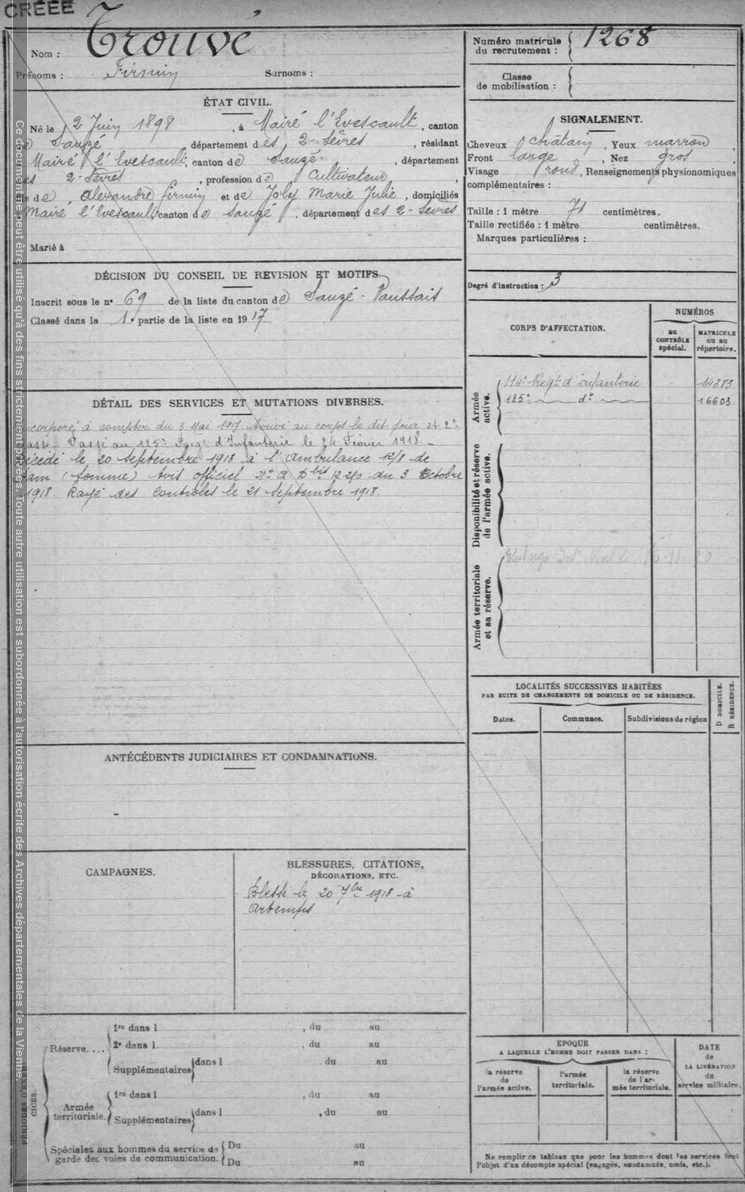 CRÉÉE
Nom : Trouvé
Prénoms : Firmin Surnoms :
Numéro matricule du recrutement : 1268
Classe de mobilisation :
ÉTAT CIVIL.
Né le 2 Juin 1898, à Mairé l'Evescault, canton
de Sauzé, département des 2-Sèvres, résidant
à Mairé l'Evescault, canton de Sauzé, département
des 2-Sèvres, profession de Cultivateur,
fils de Alexandre Firmin et de Joly Marie Julie, domiciliés
à Mairé l'Evescault canton de Sauzé, département des 2-Sèvres
Marié à
SIGNALEMENT.
Cheveux châtain, Yeux marron,
Front large, Nez gros,
Visage rond, Renseignements physionomiques
complémentaires :
Taille : 1 mètre 71 centimètres.
Taille rectifiée : 1 mètre centimètres.
Marques particulières :
Degré d'instruction : 3
DÉCISION DU CONSEIL DE RÉVISION ET MOTIFS
Inscrit sous le n° 69 de la liste du canton de Sauzé-Vaussais
Classé dans la 1e partie de la liste en 1917
DÉTAIL DES SERVICES ET MUTATIONS DIVERSES.
Incorporé à compter du 3 Mai 1917. Arrivé au corps le dit jour st 2e
classe. Passé au 125e Régt d'Infanterie le 24 Février 1918 -
Décédé le 20 Septembre 1918 à l'Ambulance 12/8 de
Ham (Somme) Avis officiel du 3 Octobre
1918 Rayé des contrôles le 21 Septembre 1918.
CORPS D'AFFECTATION.
NUMÉROS
AU CONTRÔLE spécial.
MATRICULE OU AU répertoire.
Armée active.
114e Régt d'infanterie 14283
125e d° 16603
Disponibilité et réserve de l'armée active.
Armée territoriale et sa réserve.
LOCALITÉS SUCCESSIVES HABITÉES
PAR SUITE DE CHANGEMENTS DE DOMICILE OU DE RÉSIDENCE.
Dates.
Communes.
Subdivisions de région
D DOMICILE.
R RÉSIDENCE.
ANTÉCÉDENTS JUDICIAIRES ET CONDAMNATIONS.
CAMPAGNES.
BLESSURES, CITATIONS,
DÉCORATIONS, ETC.
Blessé le 20 7bre 1918 à
Artemps
PÉRIODES D'EXERCICES.
Réserve....
1re dans l , du au
2e dans l , du au
Supplémentaires dans l , du au
Armée territoriale.
1re dans l , du au
Supplémentaires dans l , du au
Spéciales aux hommes du service de garde des voies de communication.
Du au
Du au
ÉPOQUE
A LAQUELLE L'HOMME DOIT PASSER DANS :
la réserve de l'armée active.
l'armée territoriale.
la réserve de l'armée territoriale.
DATE de LA LIBÉRATION du service militaire.
Ne remplir ce tableau que pour les hommes dont les services font
l'objet d'un décompte spécial (engagés, condamnés, omis, etc.).
Ce document ne peut être utilisé qu'à des fins strictement privées. Toute autre utilisation est subordonnée à l'autorisation écrite des Archives départementales de la Vienne